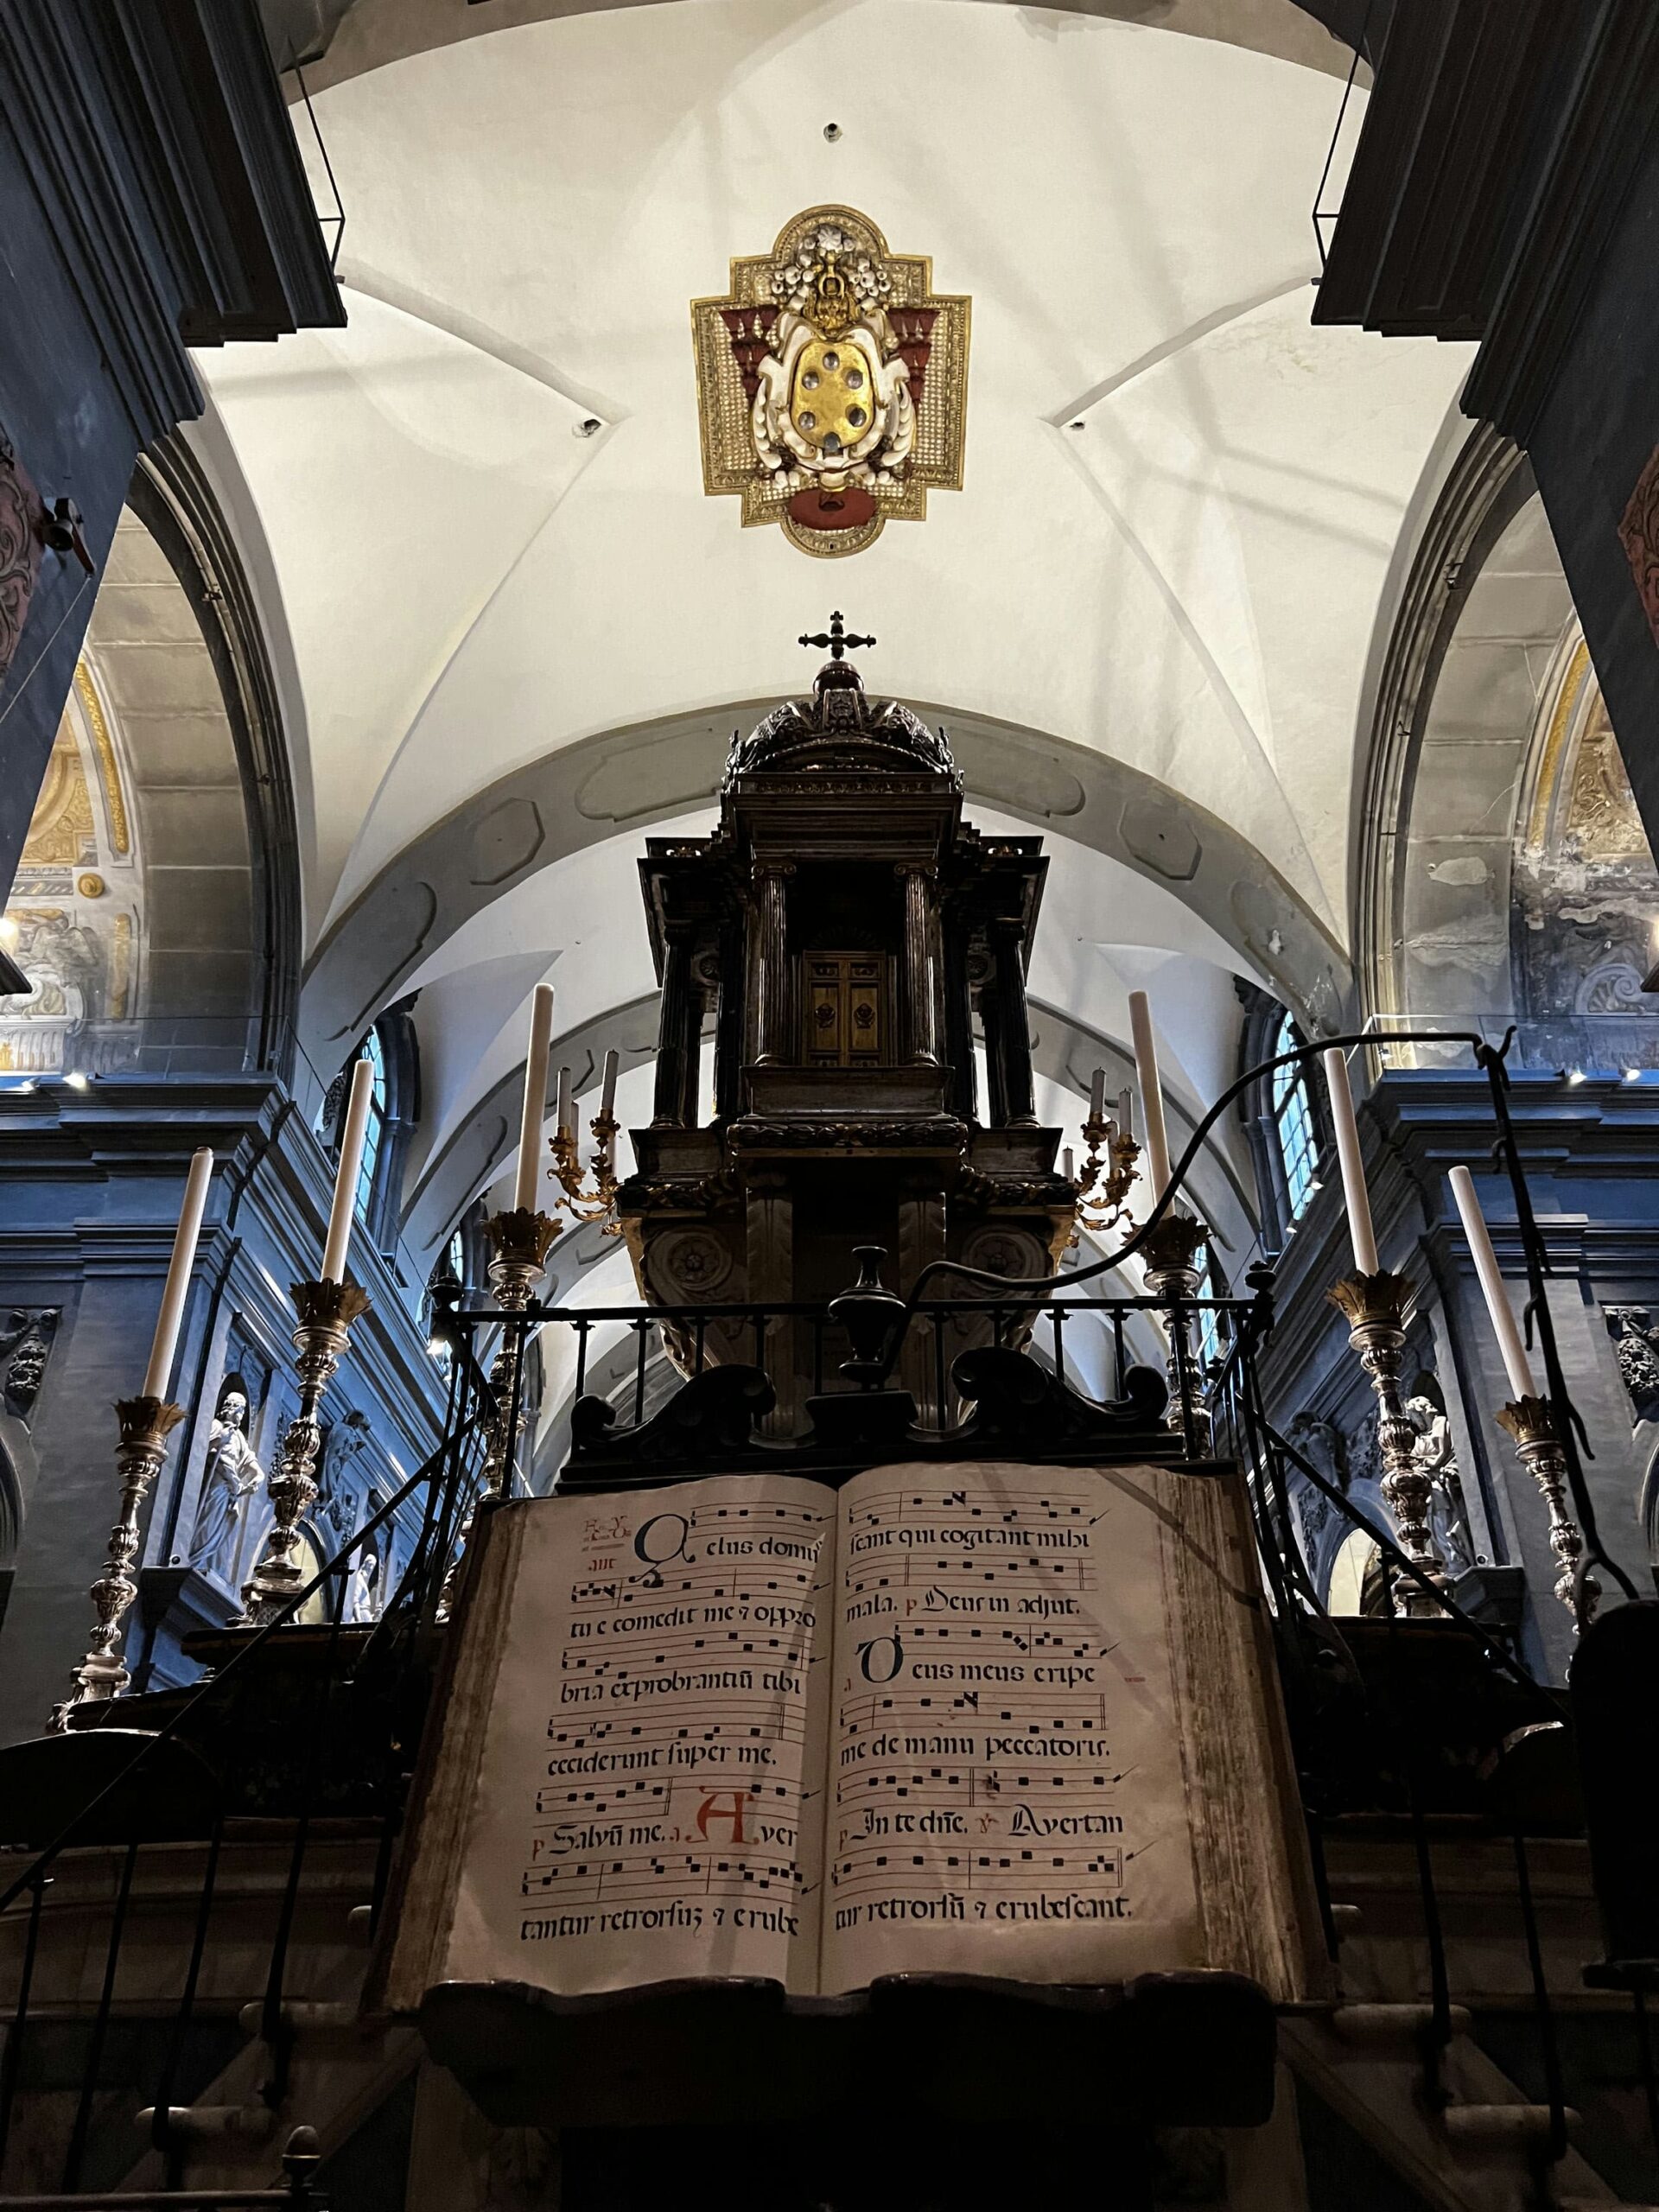 ant
Zelus domus
tu e comedit me ⁊ oppro
bria exprobrantiū tibi
ceciderunt super me.
p Salvū me. a Aver
tantur retrorsuʒ ⁊ erube
scant qui cogitant mihi
mala. p Deus in adjut.
a Deus meus eripe
me de manu peccatoris.
p In te dn̄e. ℣ Avertan
tur retrorsū ⁊ erubescant.